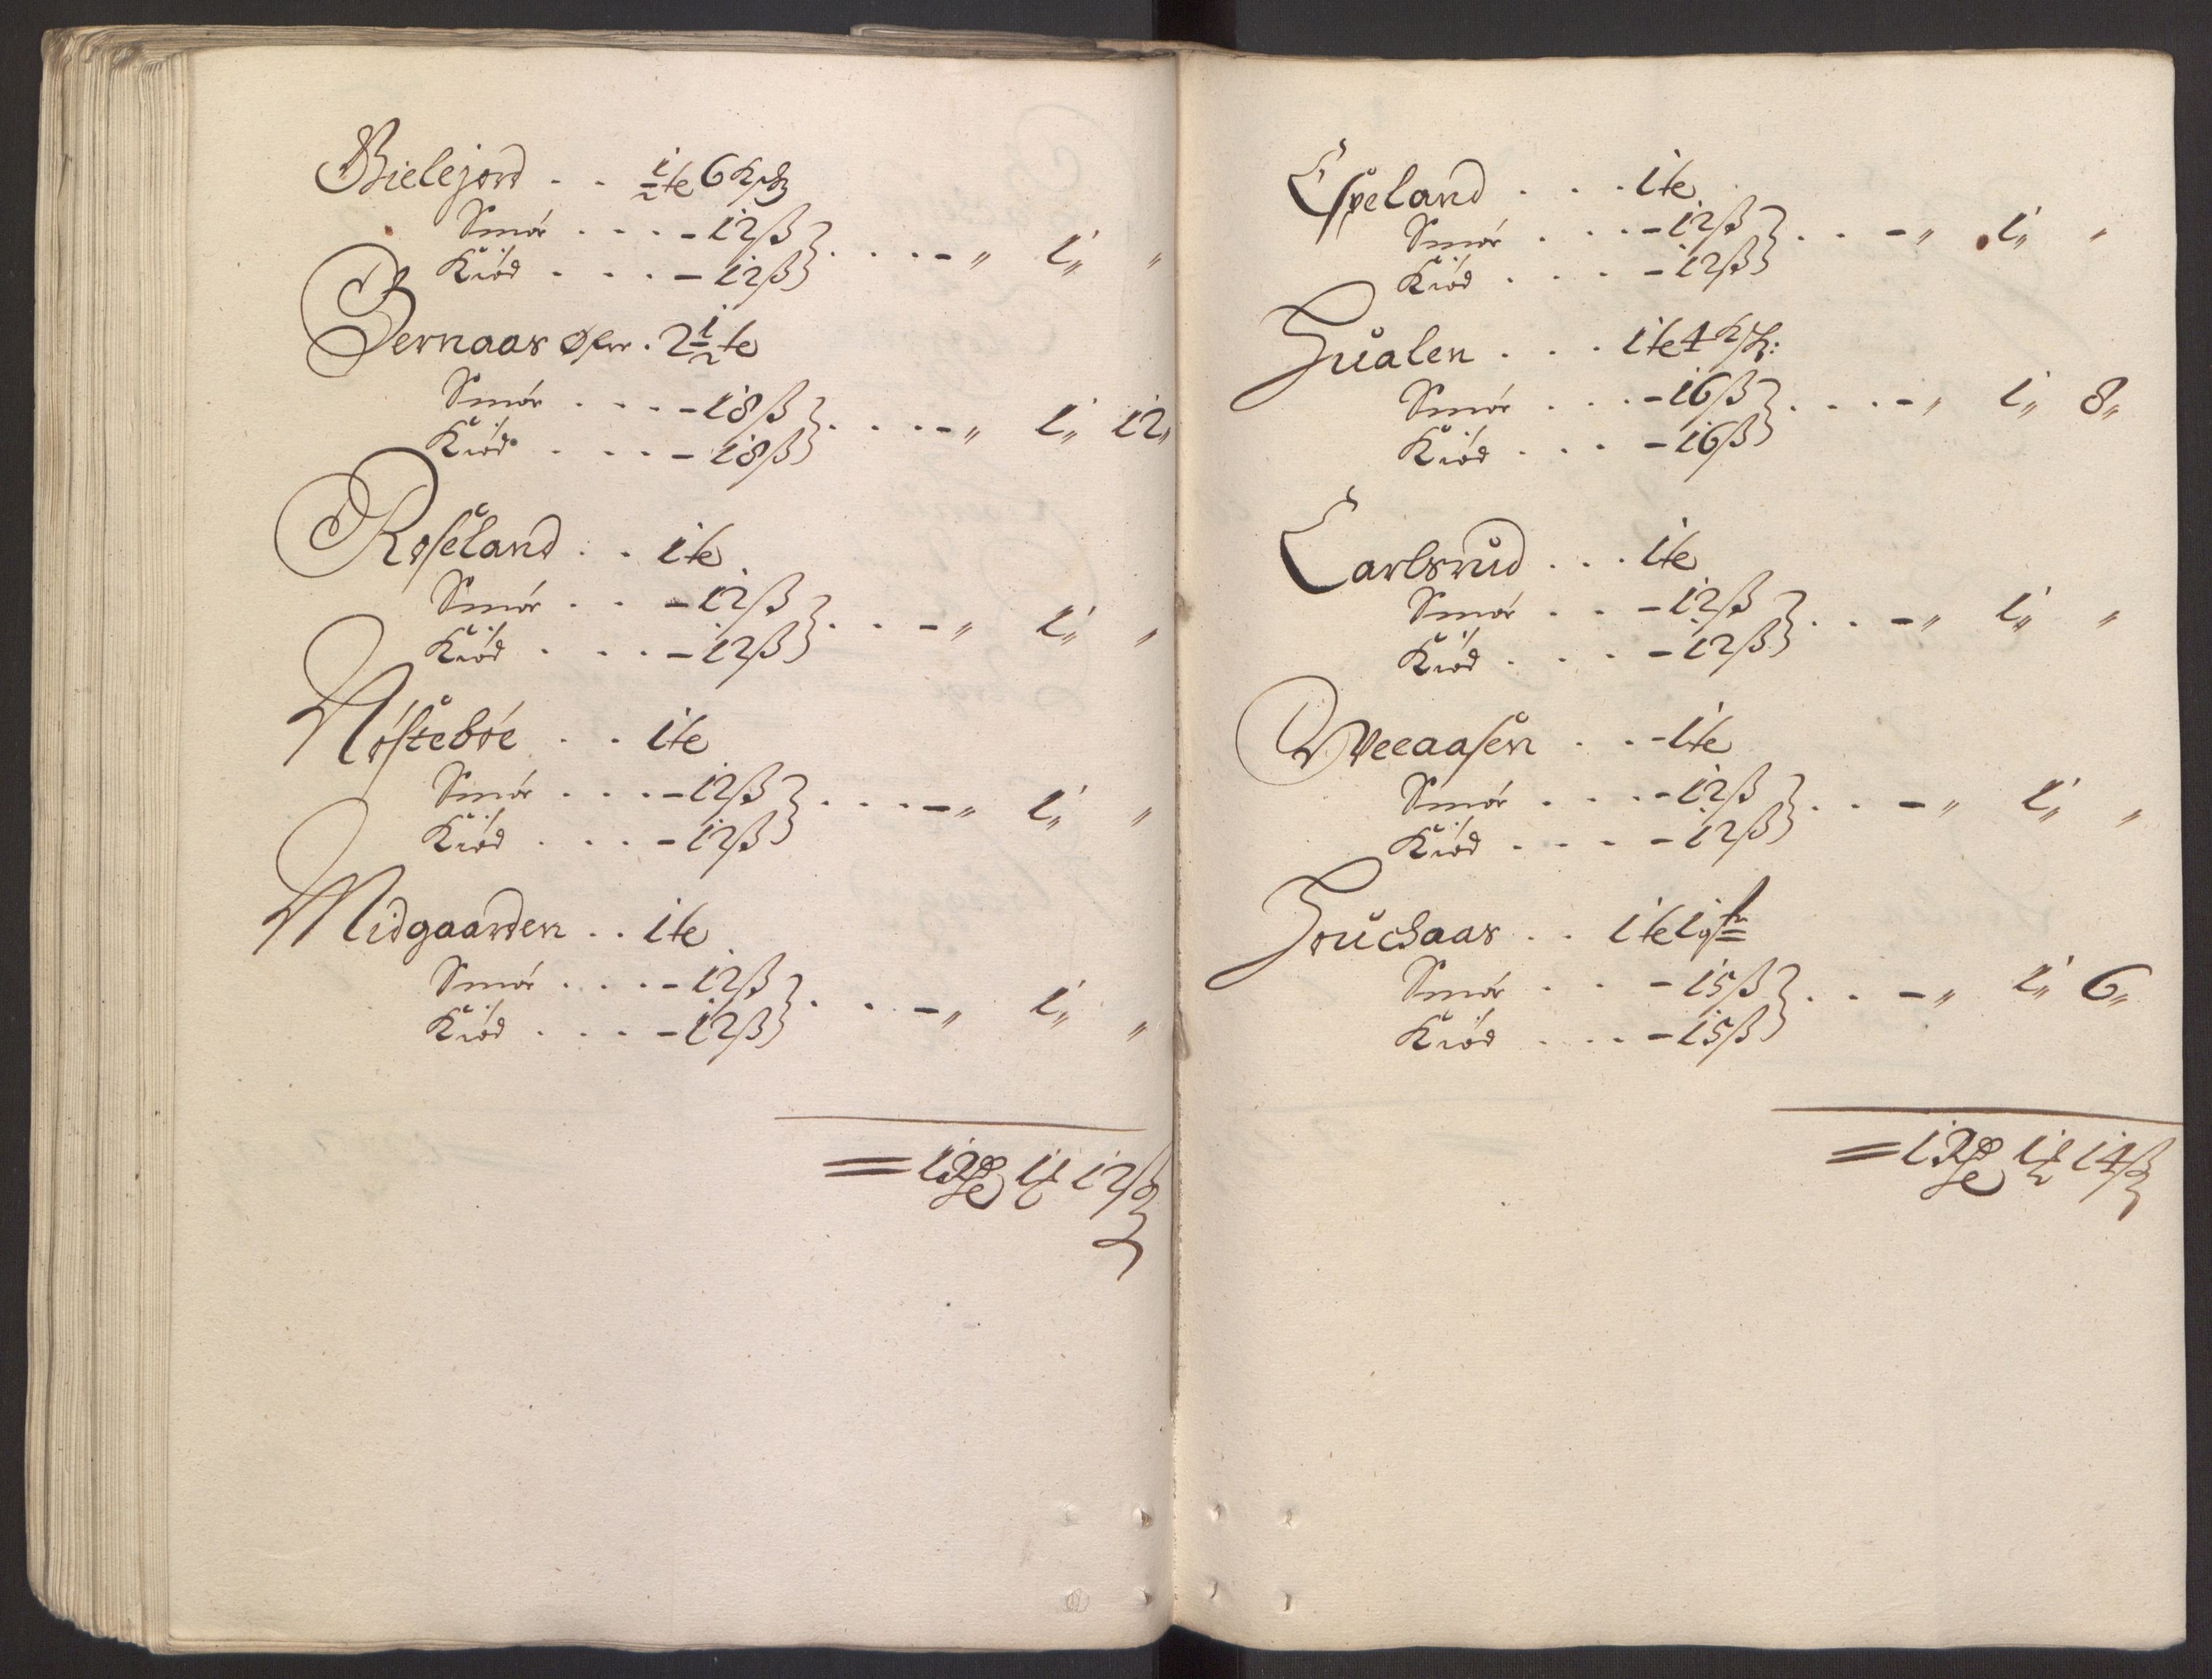 Bielejord . . ½ te 6 kps
Smör . . . - 12 ß
Kiöd . . . - 12 ß } . . . . - " 1 " "
Bernaas öfre . 2½ te
Smör . . . - 18 ß
Kiöd . . . - 18 ß } . . . . - " 1 " 12 "
Roseland . . 1 te
Smör . . - 12 ß
Kiöd . . . - 12 ß } . . . - " 1 " "
Nösteböe . . 1 te
Smör . . . - 12 ß
Kiöd . . . - 12 ß } . . . . - " 1 " "
Midgaarden . . 1 te
Smör . . . - 12 ß
Kiöd . . . - 12 ß } . . . - " 1 " "
= 1 Rde 1 12 ß
Espeland . . . 1 te
Smör . . . - 12 ß
Kiöd . . . - 12 ß } . . - " 1 " "
Hualen . . . 1 te 4 ks:
Smör . . . - 16 ß
Kiöd . . . - 16 ß } . . . . - " 1 " 8 "
Carlsrud . . . 1 te
Smör . . - 12 ß
Kiöd . . . - 12 ß } . . - " 1 " "
Weeaasen . . - 1 te
Smör . . . - 12 ß
Kiöd . . . . - 12 ß } . . - " 1 " "
. . 1 te 1
Smör . . - 15 ß
Kiöd . . . - 15 ß } . . - " 1 " 6 "
= 1 Rde 1 14 ß